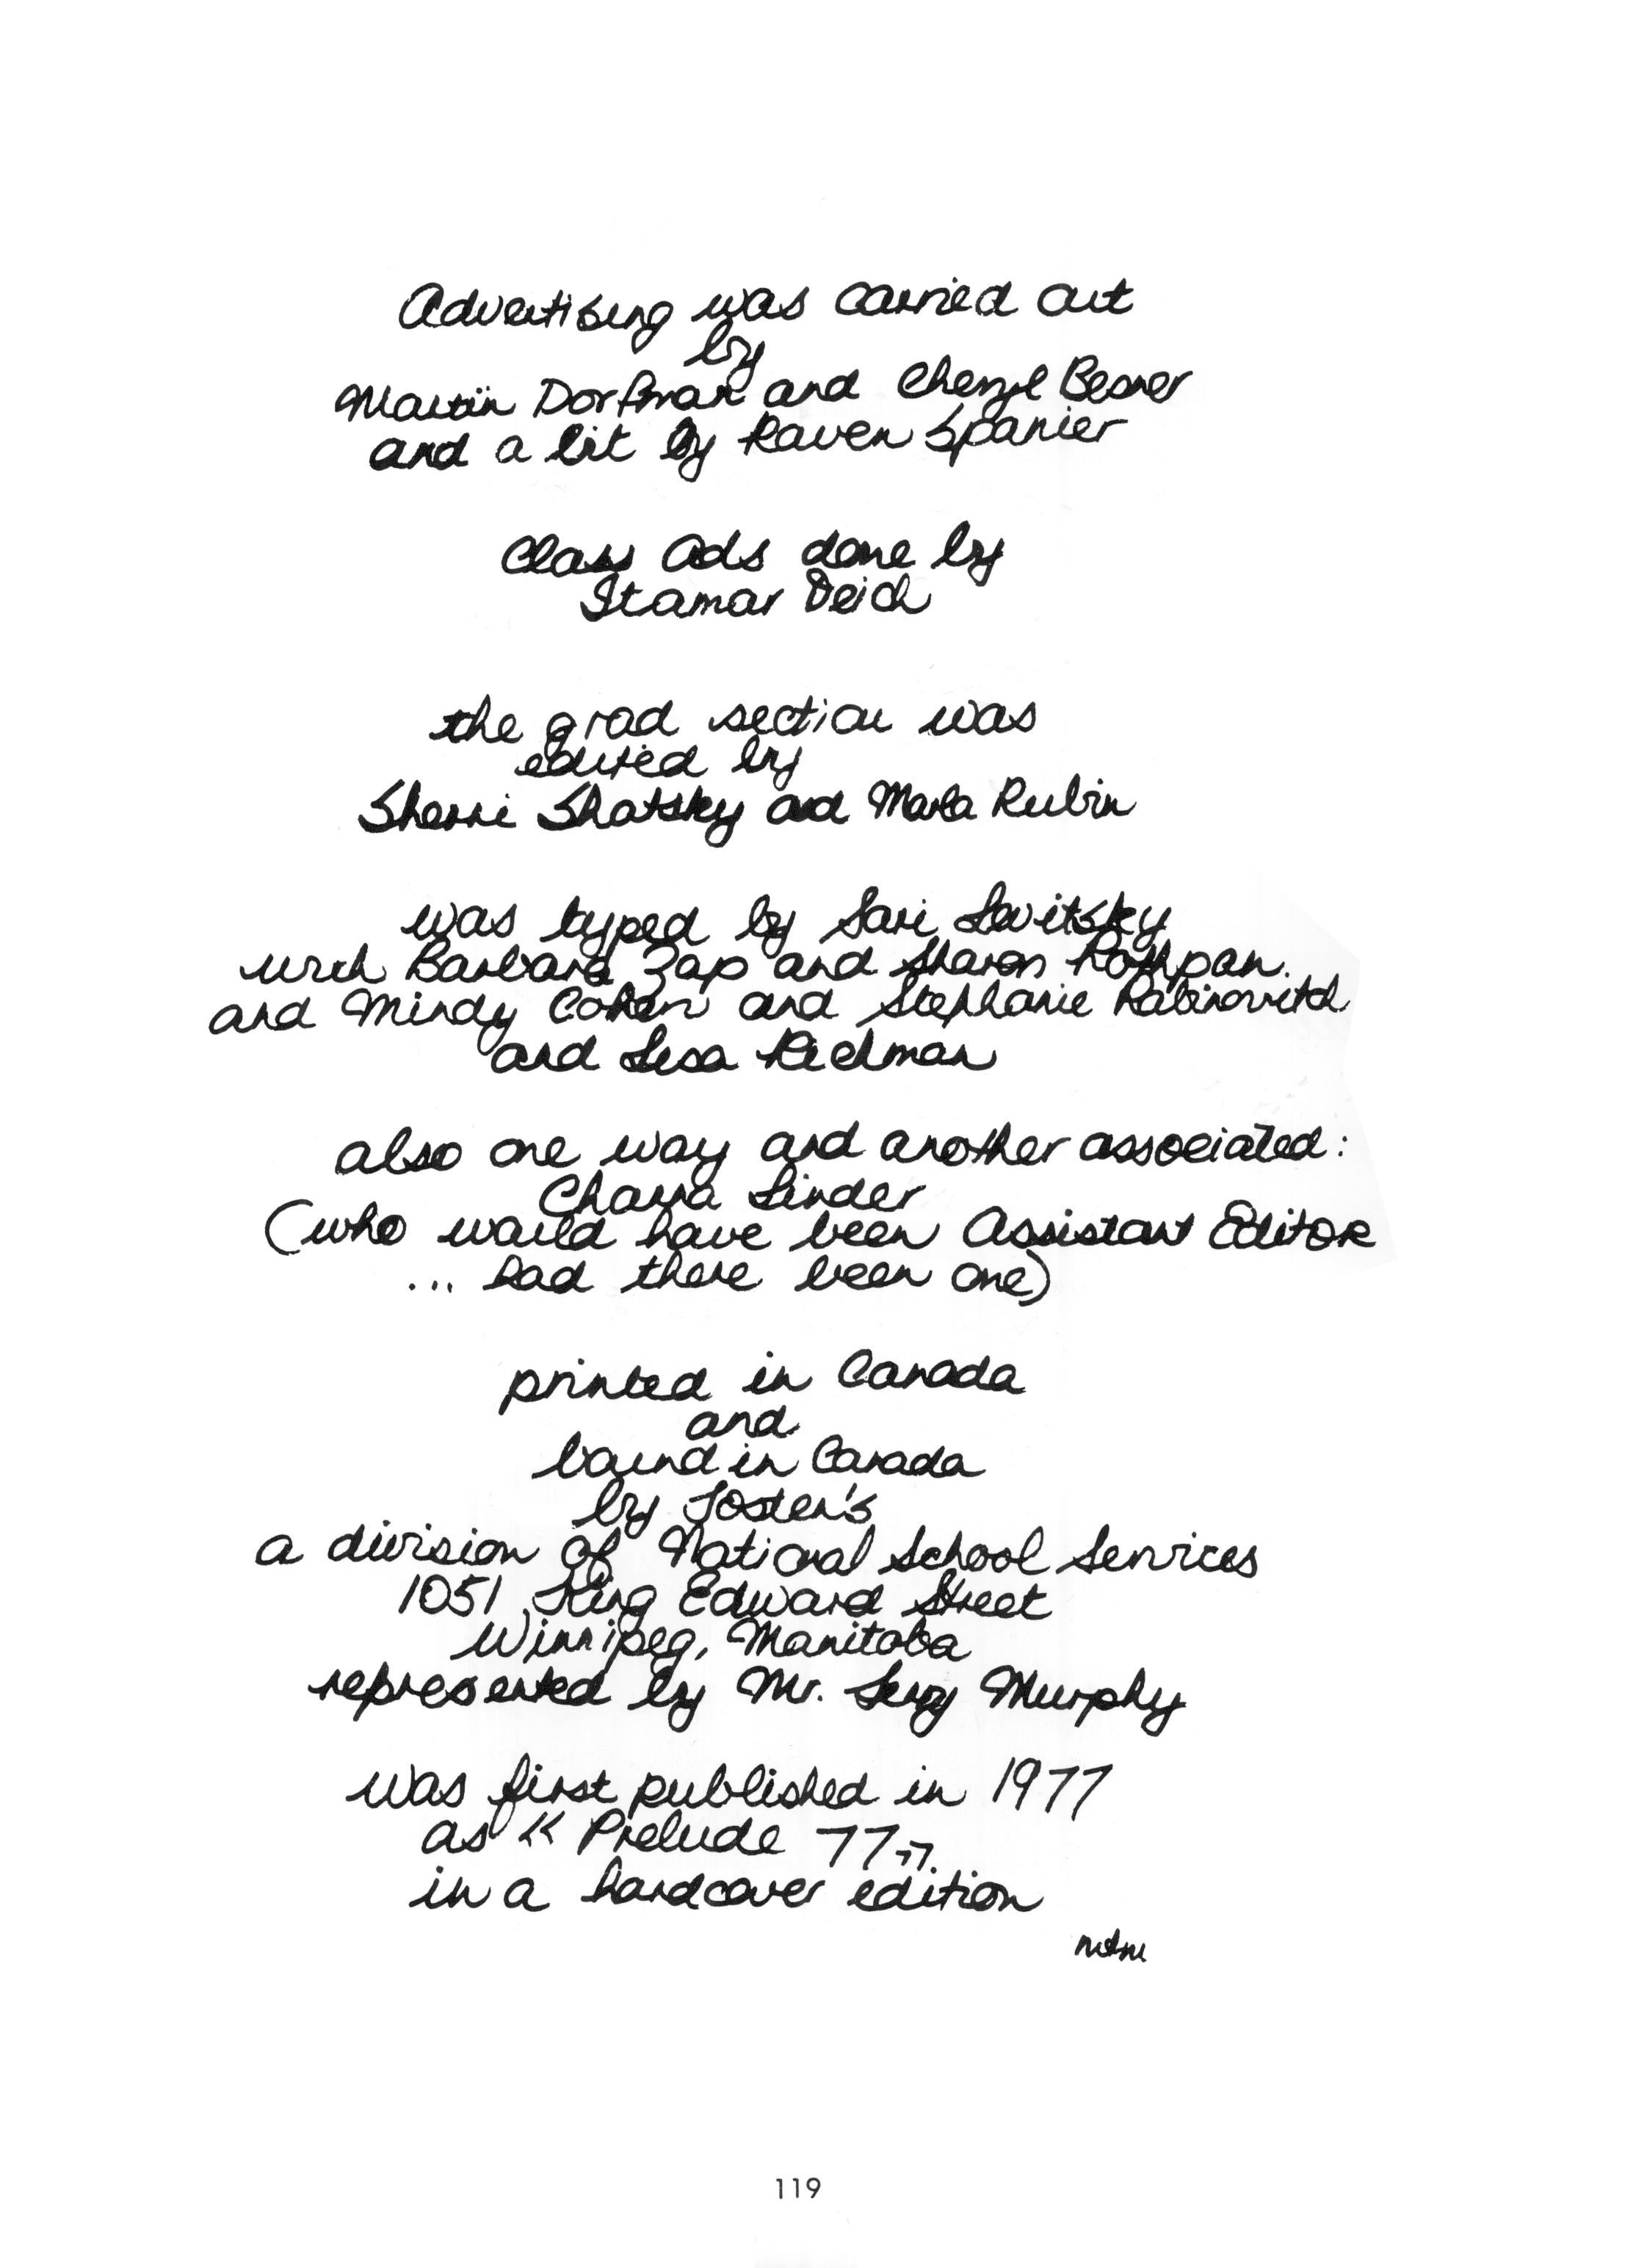 Advertising was carried out
by
Martin Dorfman and Cheryl Besner
and a bit by Raven Spanier
Class Ads done by
Itamar Deich
the grad section was
edited by
Sherri Shatsky and Marla Rubin
was typed by Sari Levitsky
with Barbara Zap and Sharon Rothpan.
and Mindy Cohen and Stephanie Rabinovitch
and Lisa Richman
also one way and another associated:
Chana Linder
(who would have been Assistant Editor
... had there been one)
printed in Canada
and
bound in Canada
by Josten's
a division of National School Services
1051 King Edward Street
Winnipeg, Manitoba
represented by Mr. Murphy
was first published in 1977
as « Prelude 77 »
in a hardcover edition
119